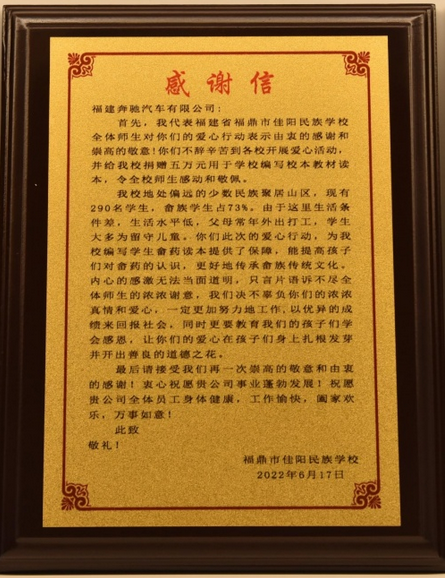 感谢信
福建奔驰汽车有限公司：
首先，我代表福建省福鼎市佳阳民族学校
全体师生对你们的爱心行动表示由衷的感谢和
崇高的敬意！你们不辞辛苦到各校开展爱心活动，
并给我校捐赠五万元用于学校编写校本教材读
本，令全校师生感动和敬佩。
我校地处偏远的少数民族聚居山区，现有
290名学生，畲族学生占73%。由于这里生活条
件差，生活水平低，父母常年外出打工，学生
大多为留守儿童。你们此次的爱心行动，为我
校编写学生畲药读本提供了保障，能提高孩子
们对畲药的认识，更好地传承畲族传统文化。
内心的感激无法当面道明，只言片语诉不尽全
体师生的浓浓谢意，我们决不辜负你们的浓浓
真情和爱心，一定更加努力地工作，以优异的成
绩来回报社会，同时更要教育我们的孩子们学
会感恩，让你们的爱心在孩子们身上扎根发芽
并开出善良的道德之花。
最后请接受我们再一次崇高的敬意和由衷
的感谢！衷心祝愿贵公司事业蓬勃发展！祝愿
贵公司全体员工身体健康，工作愉快，阖家欢
乐，万事如意！
此致
敬礼！
福鼎市佳阳民族学校
2022年6月17日